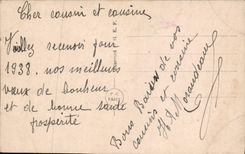 Cher cousin et cousine
Veuillez recevoir pour
1938. nos meilleurs
vœux de bonheur
et de bonne santé
prospérité
Bons Baisers de vos
cousins et cousine